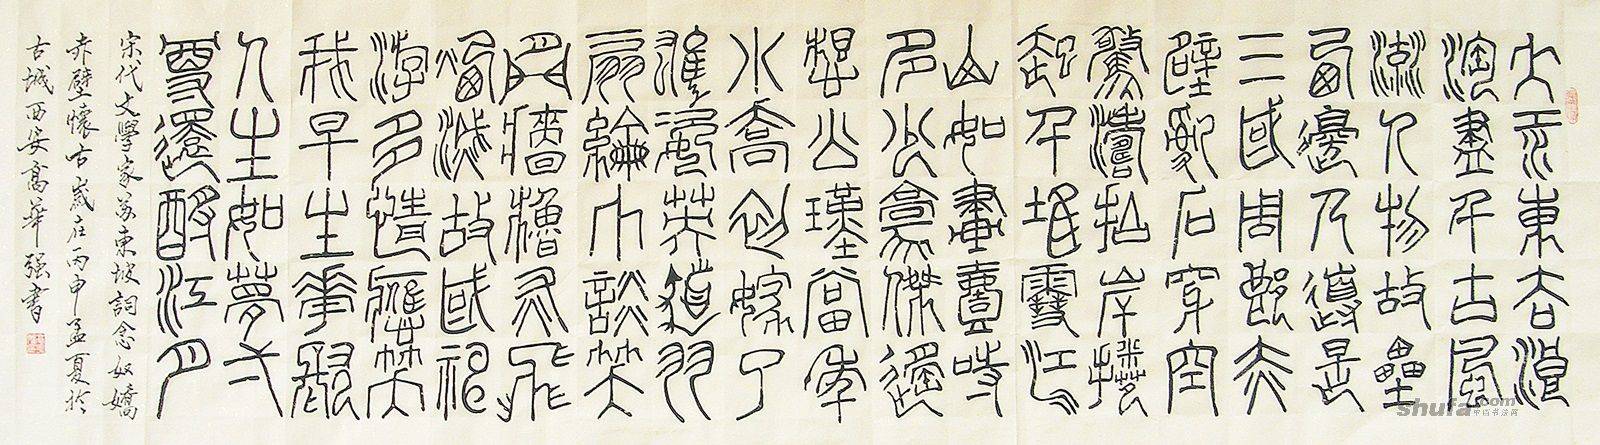 大江東去浪
淘盡千古風
流人物故壘
西邊人道是
三國周郎赤
壁亂石穿空
驚濤拍岸捲
起千堆雪江
山如畫壹時
多少豪傑遙
想公瑾當年
小喬初嫁了
雄姿英發羽
扇綸巾談笑
間檣櫓灰飛
煙滅故國神
游多情應笑
我早生華髮
人生如夢弌
尊還酹江月
宋代文學家苏東坡詞念奴嬌
赤壁懷古歲在丙申孟夏於
古城西安高華强書
shufa.com
中国书法网